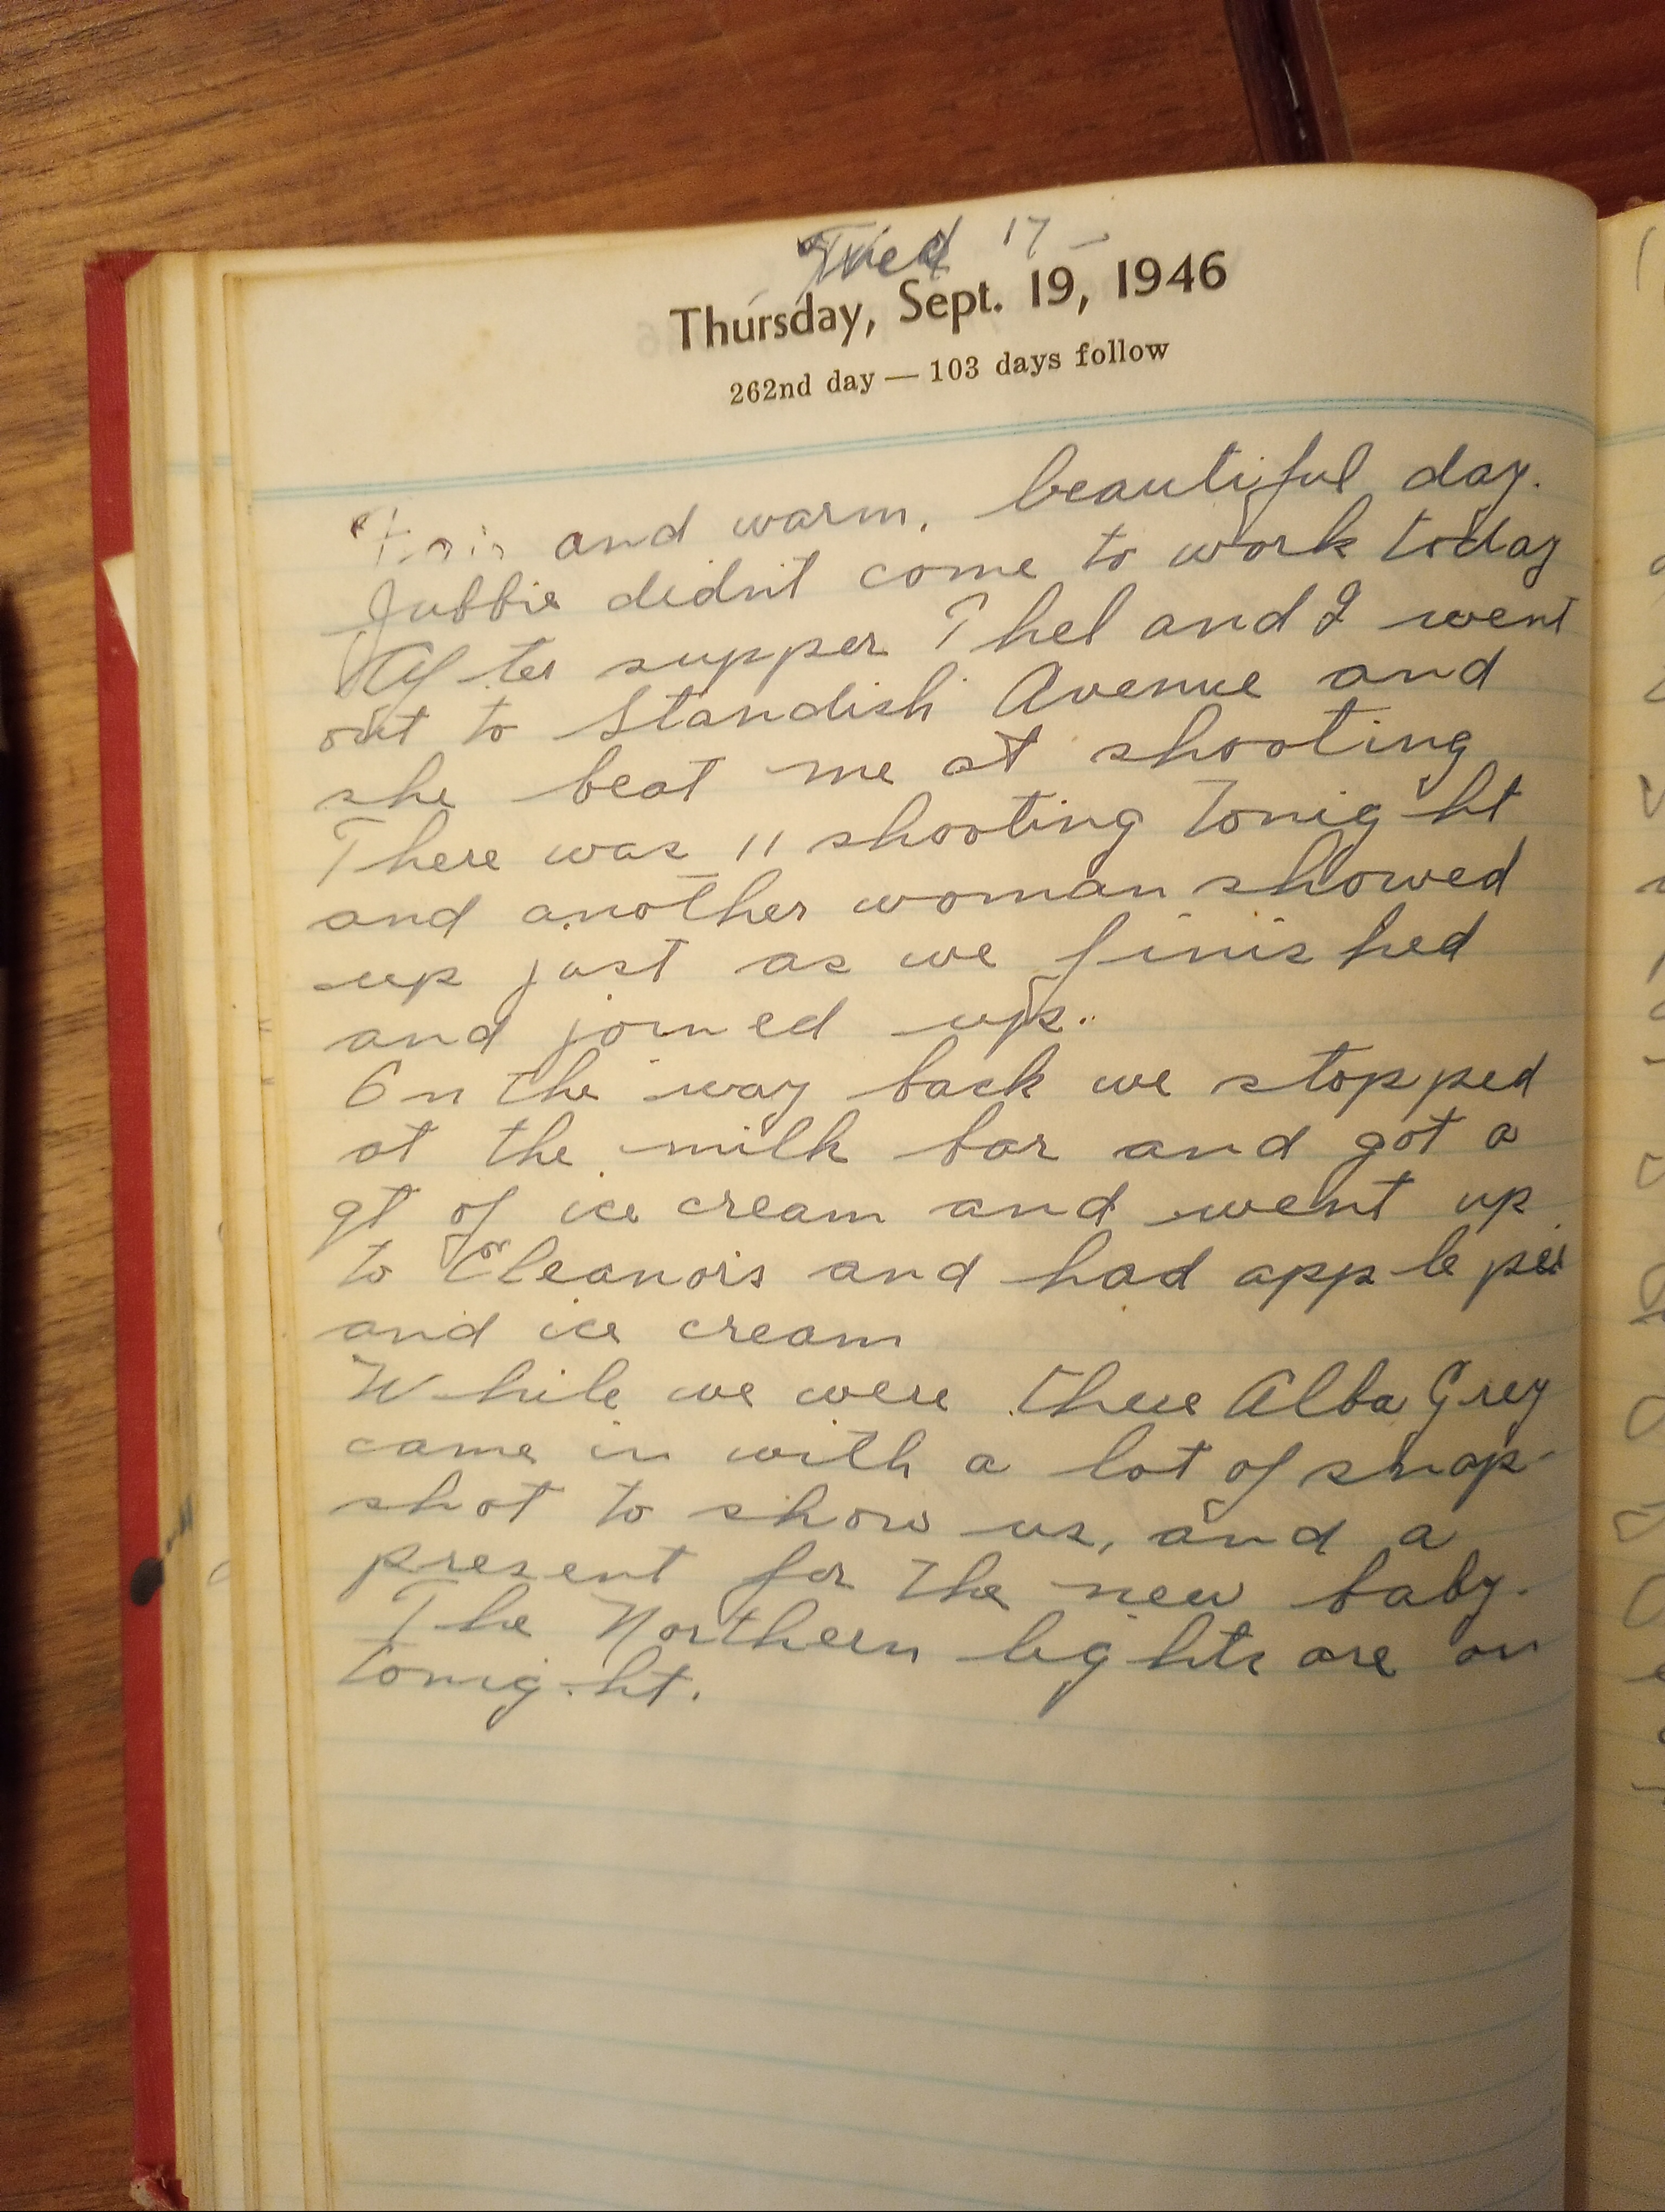 Wed 17 -
Thursday, Sept. 19, 1946
262nd day — 103 days follow
Fair and warm. beautiful day.
Jubbie didn't come to work today
After supper Thel and I went
out to Standish Avenue and
she beat me at shooting
There was 11 shooting tonight
and another woman showed
up just as we finished
and joined up.
On the way back we stopped
at the milk bar and got a
qt of ice cream and went up
to Eleanors and had apple pei
and ice cream
While we were there Alba Grey
came in with a lot of snap-
shot to show us, and a
present for the new baby.
The Northern lights are on
tonight.